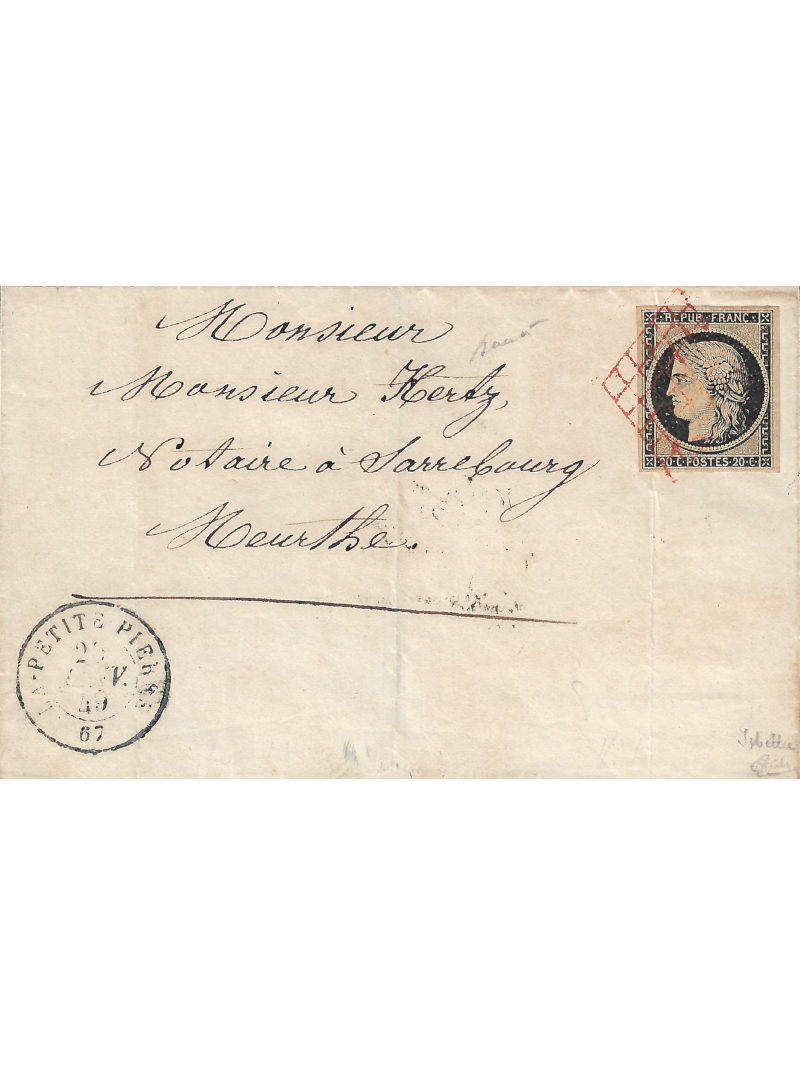 Monsieur
Monsieur Hertz,
Notaire à Sarrebourg
Meurthe.
REPUB. FRANC.
20.C.POSTES.20.C.
LA-PETITE PIERRE
49
67